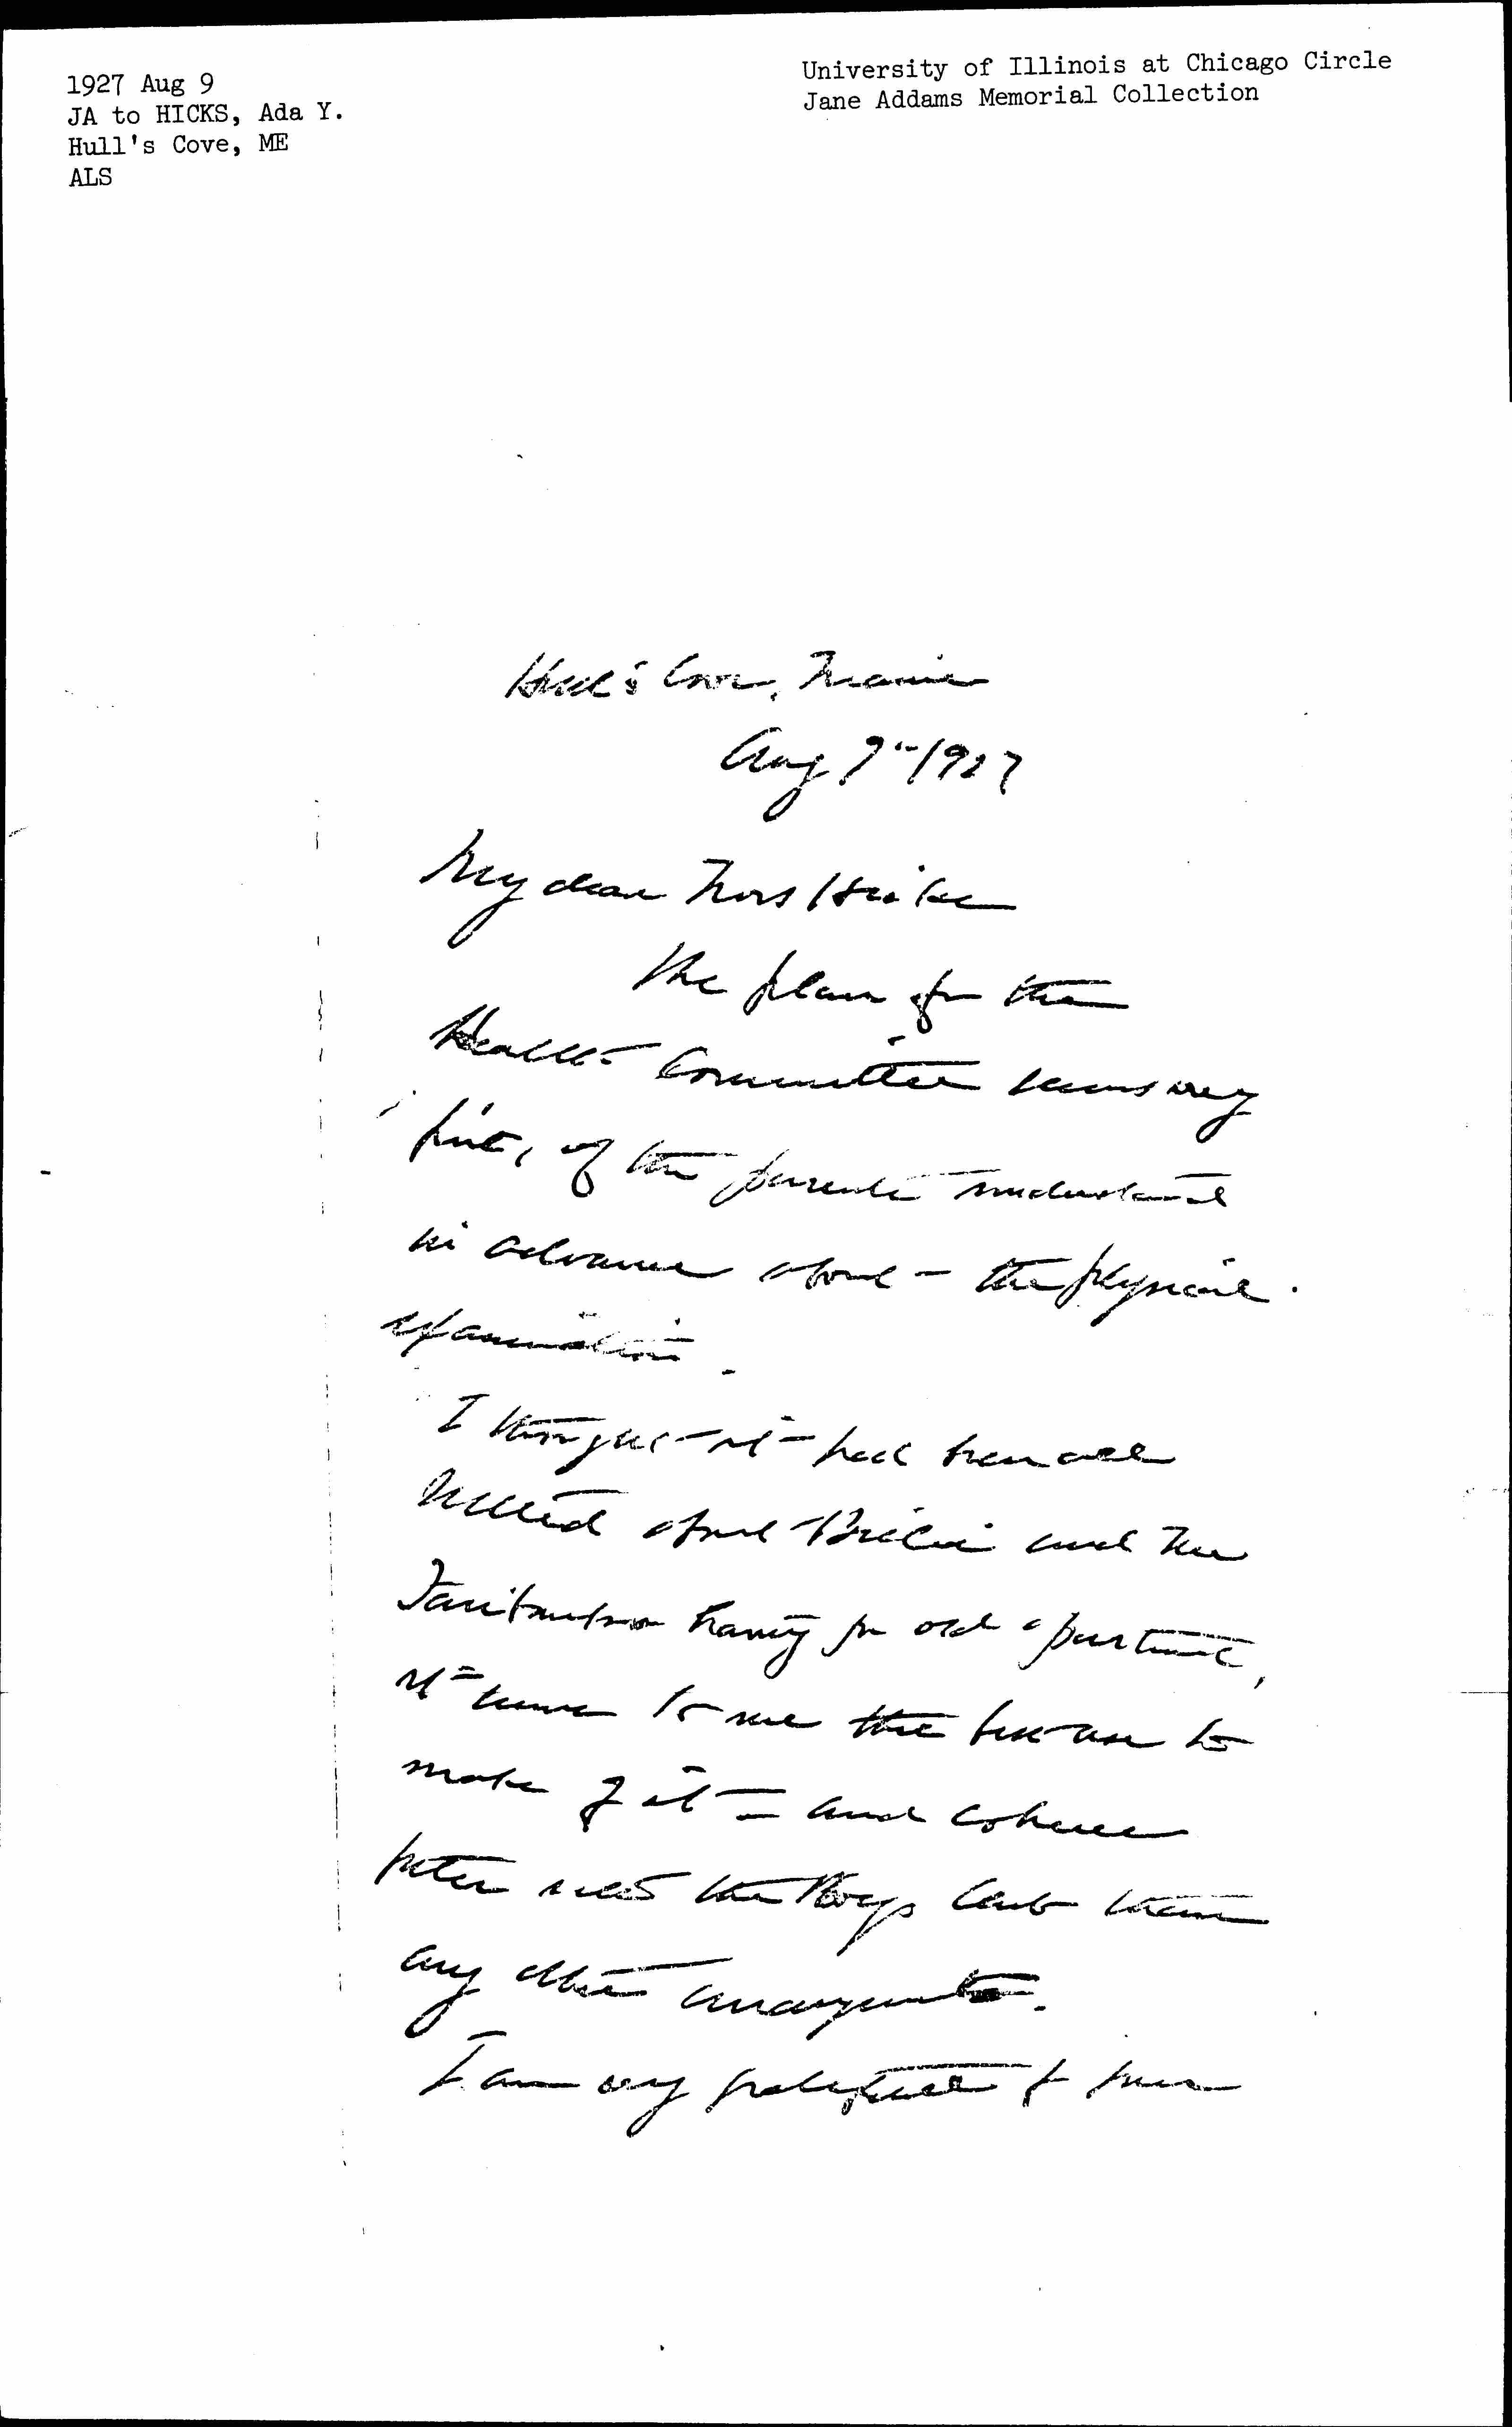 1927 Aug 9
JA to HICKS, Ada Y.
Hull's Cove, ME
ALS
University of Illinois at Chicago Circle
Jane Addams Memorial Collection
Hull's Cove, Maine
Aug 9" 1927
My dear Mrs Hicks
The plan for the
Health Committee seems very
fine, if the parents understand
in advance about the physical
examination.
I thought it had been all
settled about and the
having for old apartment,
it seems to me the best use to
make of it – and
better suits the Boys Club than
any other arrangement.
I am very grateful for your